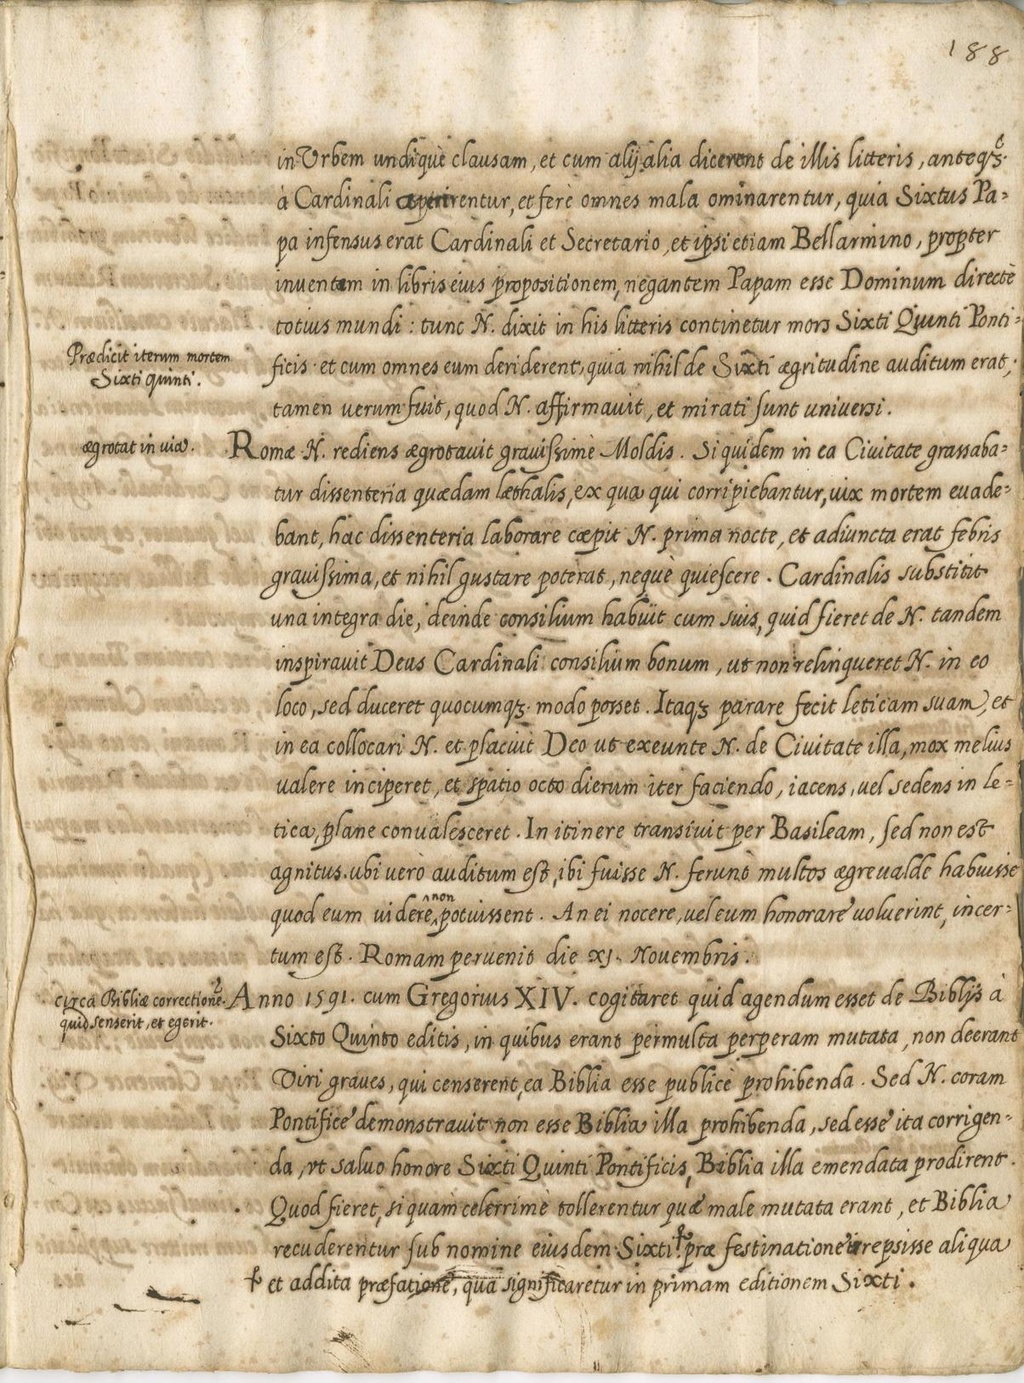 188
in Vrbem undiquè clausam, et cum alij alia dicerent de illis litteris, anteqз̃
à Cardinali aperirentur, et ferè omnes mala ominarentur, quia Sixtus Pa=
pa infensus erat Cardinali et Secretario, et ipsi etiam Bellarmino, propter
inventam in libris eius propositionem, negantem Papam esse Dominum directè
totius mundi: tunc N. dixit in his litteris continetur mors Sixti Quinti Ponti=
Prædicit iterum mortem
Sixti quinti.
ficis. et cum omnes eum deriderent, quia nihil de Sixti ægritudine auditum erat,
tamen verum fuit, quod N. affirmauit, et mirati sunt universi.
ægrotat in via.
Romæ N. rediens ægrotauit grauissimè Moldis. Siquidem in ea Ciuitate grassaba=
tur dissenteria quædam læthalis, ex qua qui corripiebantur, uix mortem euade=
bant, hac dissenteria laborare cæpit N. prima nocte, et adiuncta erat febris
grauissima, et nihil gustare poterat, nequè quiescere. Cardinalis substitit
una integra die, deinde consilium habuit cum suis, quid fieret de N. tandem
inspirauit Deus Cardinali consilium bonum, ut non relinqueret N. in eo
loco, sed duceret quocumqз modo posset. Itaqз parare fecit leticam suam, et
in ea collocari N. et placuit Deo ut exeunte N. de Ciuitate illa, mox melius
ualere inciperet, et spatio octo dierum iter faciendo, iacens, uel sedens in le=
tica, plane conualesceret. In itinere transiuit per Basileam, sed non est
agnitus. ubi uerò auditum est, ibi fuisse N. ferunt multos ægre ualde habuisse
quod eum uidere non potuissent. An ei nocere, uel eum honorare uoluerint, incer=
tum est. Romam peruenit die XJ. Nouembris.
circa Bibliæ correctionẽ
quid senserit, et egerit.
Anno 1591. cum Gregorius XIV. cogitaret quid agendum esset de Biblijs à
Sixto Quinto editis, in quibus erant permulta perperam mutata, non deerant
Viri graues, qui censerent, ea Biblia esse publicè prohibenda. Sed N. coram
Pontifice demonstrauit non esse Biblia illa prohibenda, sed esse ita corrigen=
da, vt saluo honore Sixti Quinti Pontificis, Biblia illa emendata prodirent.
Quod fieret, si quam celerrimè tollerentur quæ male mutata erant, et Biblia
recuderentur sub nomine eiusdem Sixti. præ festinatione irrepsisse aliqua
et addita præfatione, qua significaretur in primam editionem Sixti.